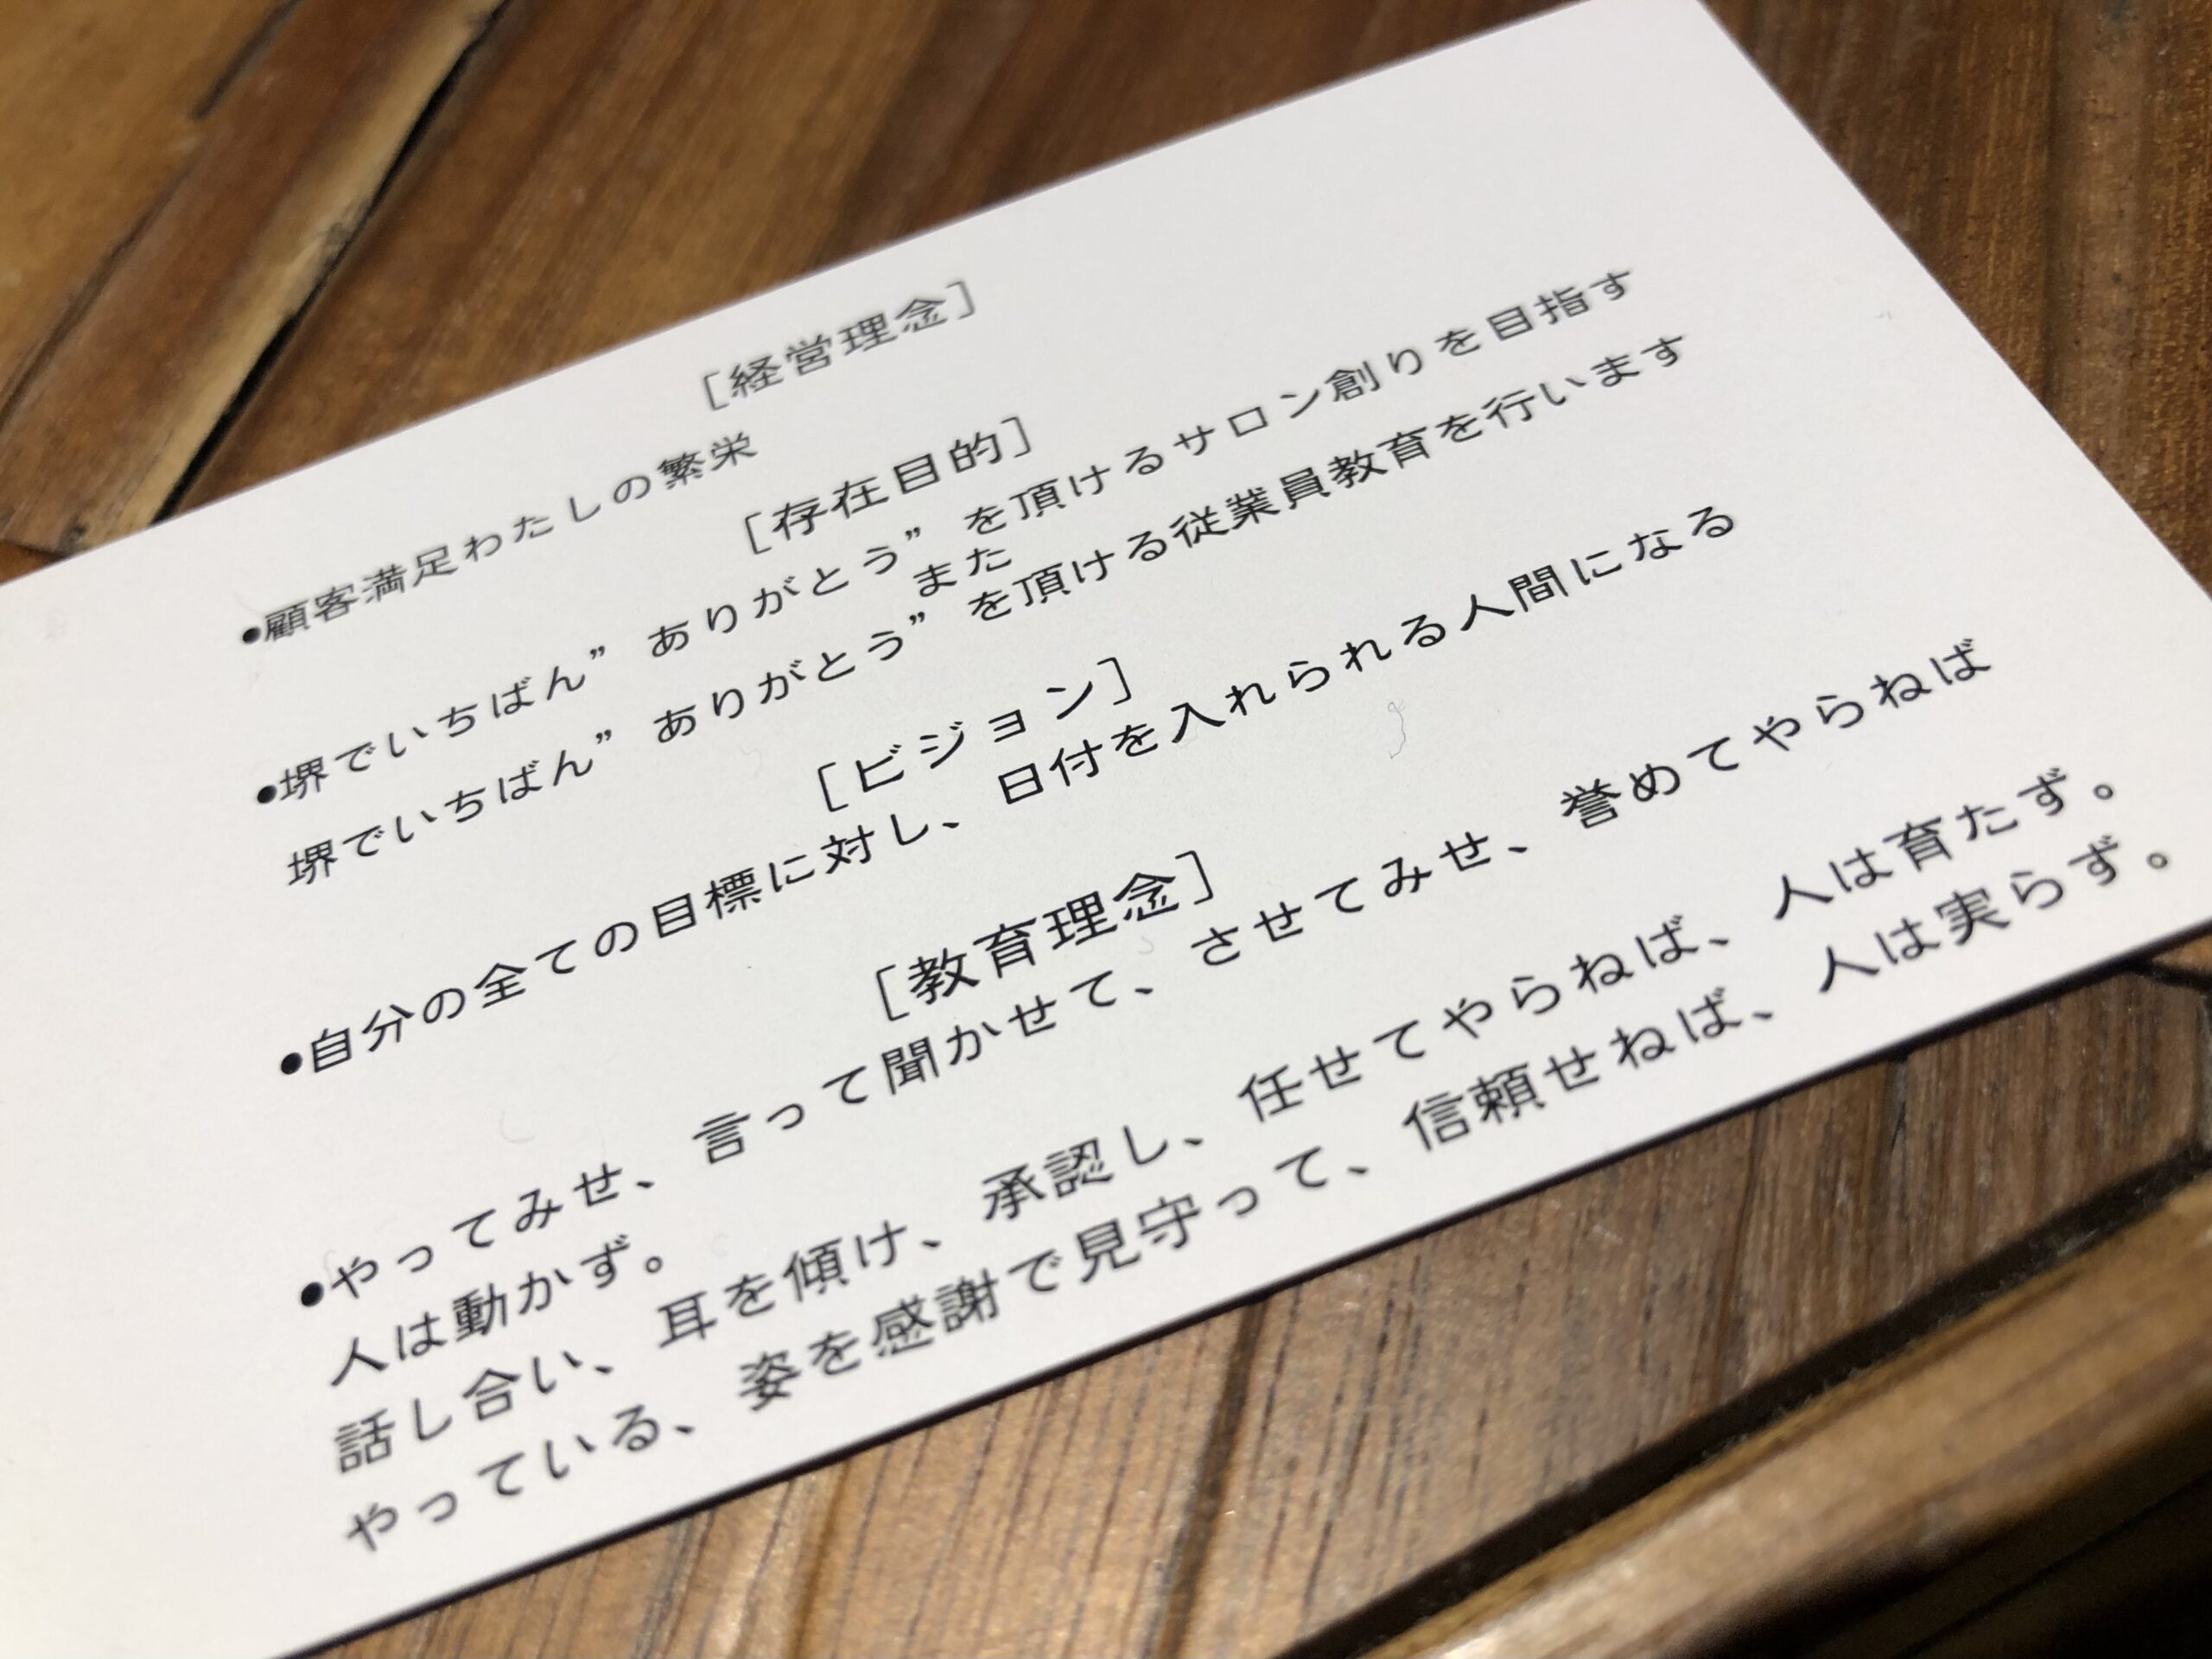 ［経営理念］
●顧客満足わたしの繁栄
［存在目的］
●堺でいちばん”ありがとう”を頂けるサロン創りを目指す
また
堺でいちばん”ありがとう”を頂ける従業員教育を行います
［ビジョン］
●自分の全ての目標に対し、日付を入れられる人間になる
［教育理念］
●やってみせ、言って聞かせて、させてみせ、誉めてやらねば
人は動かず。
話し合い、耳を傾け、承認し、任せてやらねば、人は育たず。
やっている、姿を感謝で見守って、信頼せねば、人は実らず。